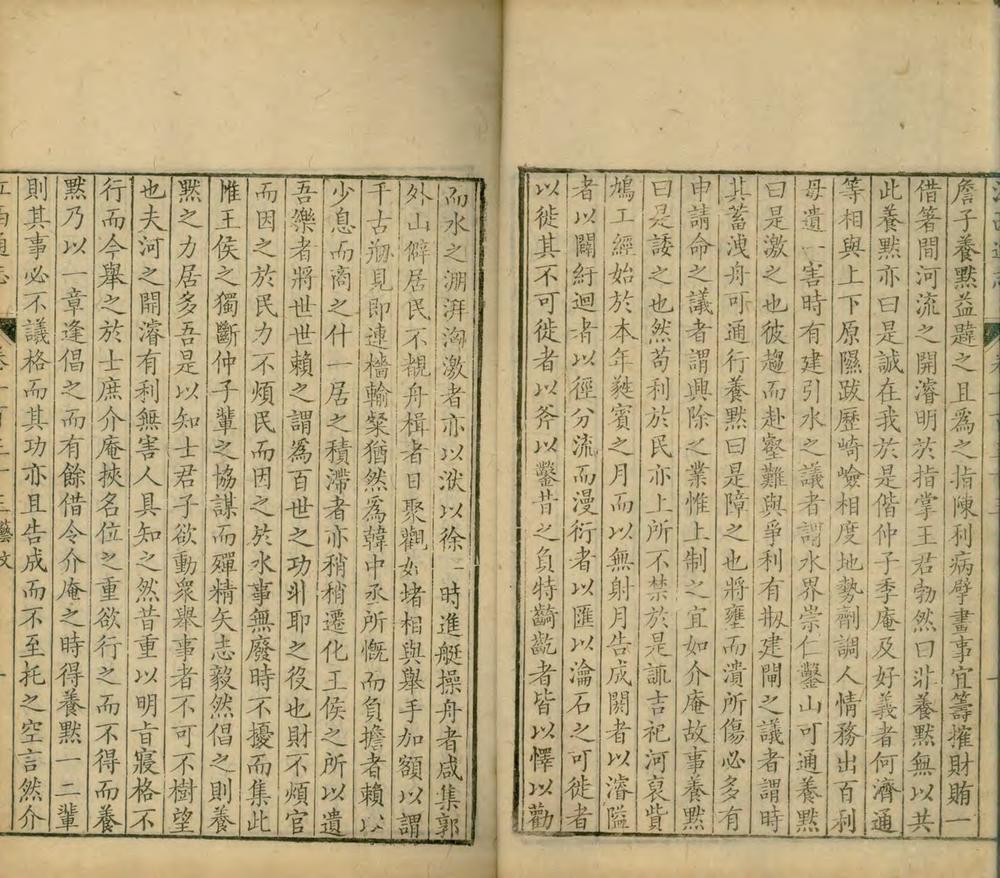 詹子養黙益韙之且爲之指陳利病擘畫事宜籌搉財賄一
借箸間河流之開濬明於指掌王君勃然曰非養黙無以共
此養黙亦曰是誠在我於是偕仲子季庵及好義者何濟通
等相與上下原隰跋歷崎嶮相度地勢劑調人情務出百利
毋遺一害時有建引水之議者謂水界崇仁鑿山可通養黙
曰是激之也彼趨而赴壑難與爭利有叛建閘之議者謂時
其蓄洩舟可通行養黙曰是障之也將壅而潰所傷必多有
申請命之議者謂興除之業惟上制之宜如介庵故事養黙
曰是諉之也然苟利於民亦上所不禁於是諏吉祀河裒貲
鳩工經始於本年蕤賓之月而以無射月告成閼者以濬隘
者以闢紆迴者以徑分流而漫衍者以匯以瀹石之可徙者
以徙其不可徙者以斧以鑿昔之負特齮齕者皆以懌以勸
而水之淜湃洶激者亦以洑以徐一時進艇操舟者咸集郭
外山僻居民不覩舟楫者日聚觀如堵相與舉手加額以謂
千古剏見即連檣輸粲猶然爲韓中丞所慨而負擔者賴以
少息而商之什一居之積滯者亦稍稍遷化王侯之所以遺
吾樂者將世世賴之謂爲百世之功非耶之役也財不煩官
而因之於民力不煩民而因之於水事無廢時不擾而集此
惟王侯之獨斷仲子輩之協謀而殫精矢志毅然倡之則養
黙之力居多吾是以知士君子欲動衆舉事者不可不樹望
也夫河之開濬有利無害人具知之然昔重以明旨寢格不
行而今舉之於士庶介庵挾名位之重欲行之而不得而養
黙乃以一章逢倡之而有餘借令介庵之時得養黙一二輩
則其事必不議格而其功亦且告成而不至托之空言然介